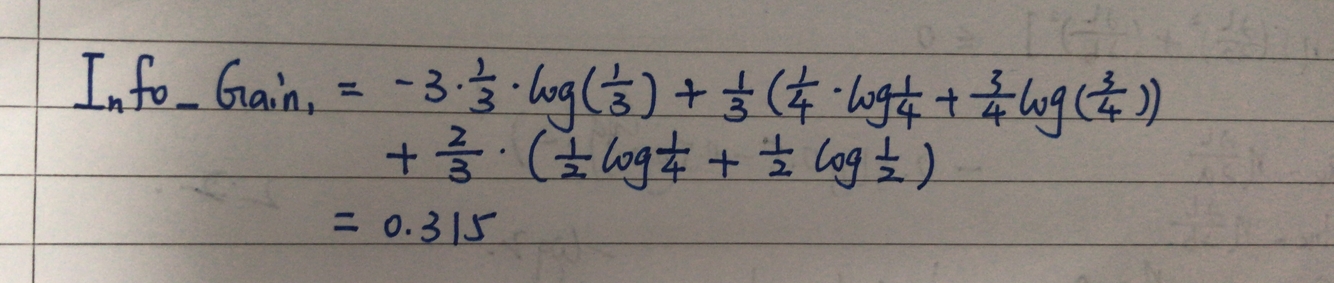 Info_Gain, = -3·1/3·log(1/3) + 1/3 (1/4·log1/4 + 3/4log(3/4))
+ 2/3·(1/2 log1/4 + 1/2 log 1/2)
= 0.315